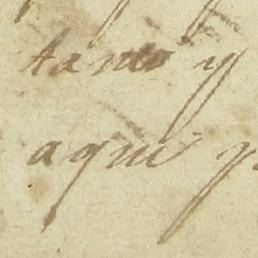 tanto y
aqui